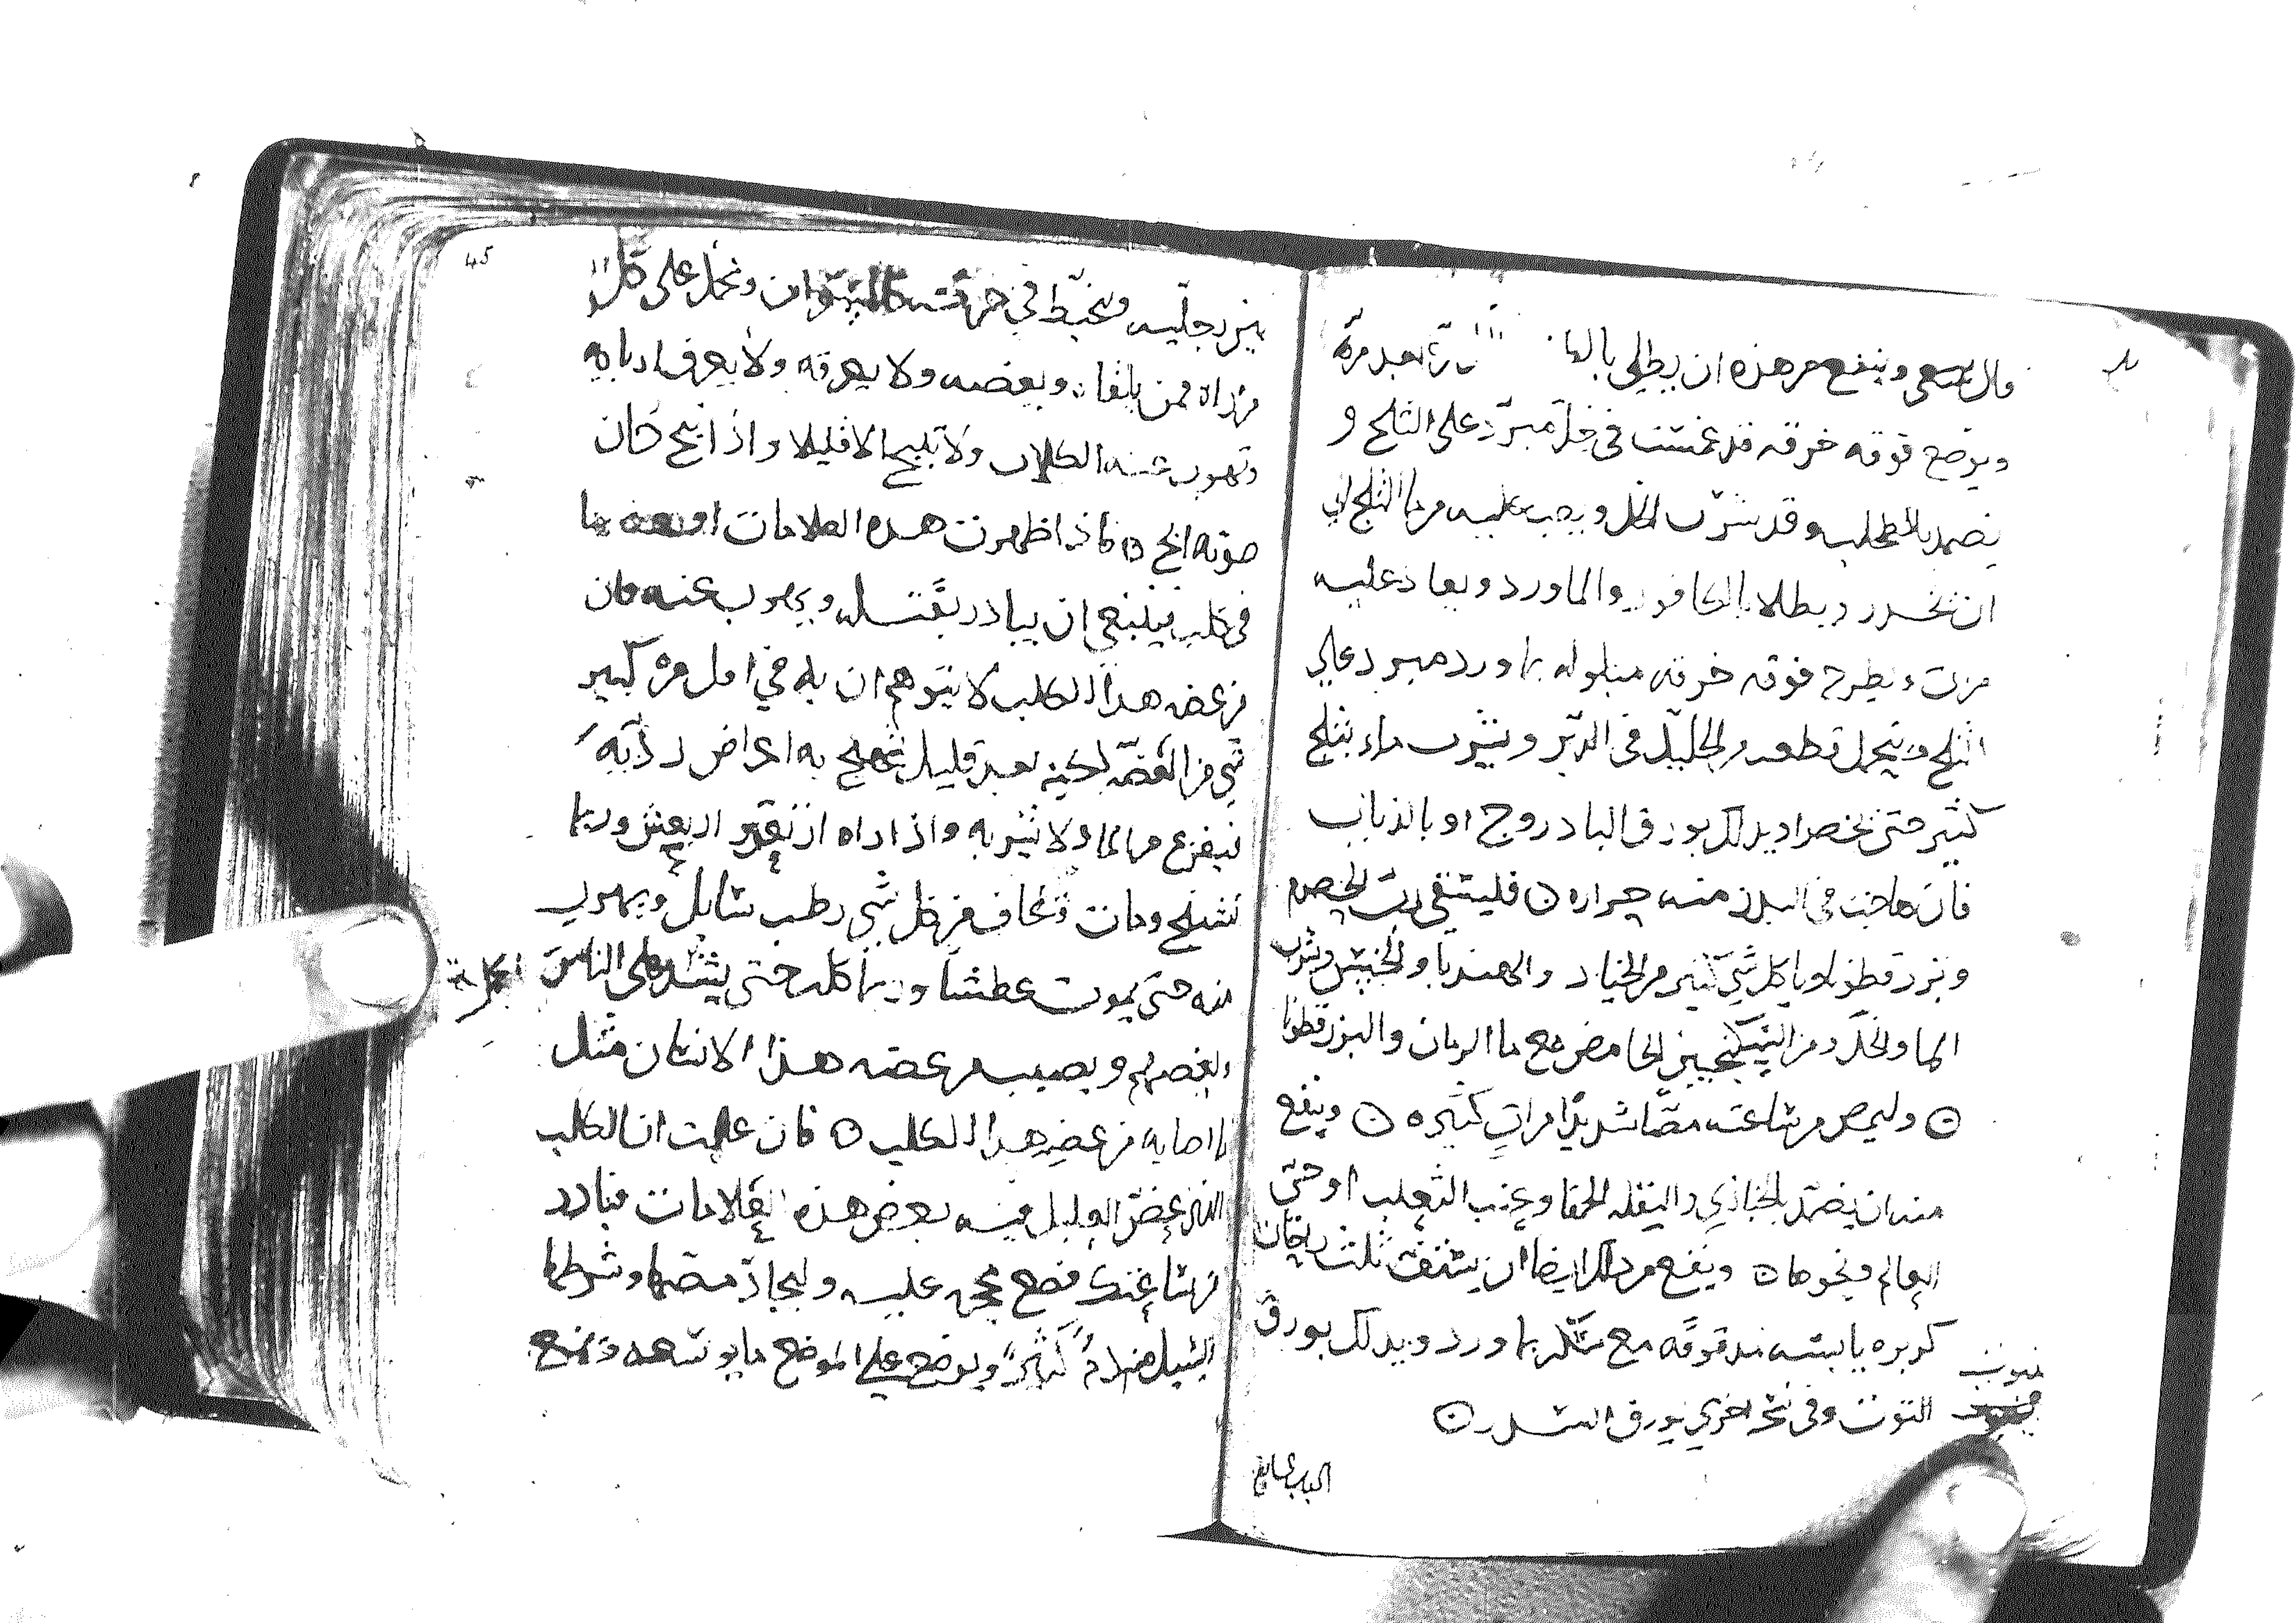 وينفع من هذه ان يطلى بالما بعد مرة
ويوضع فوقه خرقه قد غمست في خل مبرد على الثلج و
يضمد بالطحلب وقد شرب الخل ويصب عليه من ما الثلج الى
ان تخدر ويطلا بالكافور والماورد ويعاد عليه
مرت ويطرح فوقه خرقه مبلوله بماورد مبرد على
الثلج ويتحمل قطعه من الجليد في الدبر ويشرب ماء بثلج
كثير حتى يخصر او يدلك بورق البادروج او بالذباب
فان هاجت في البدن منه حراره ۞ فليستقى رب الحصرم
وبزر قطونا وياكل شي كثير من الخيار والهندبا والخس ويشرب
الما والخل ومن السكنجبين الحامض مع ما الرمان والبزر قطونا
۞ وليمص من ساعته مصا شديدا مرات كثيره ۞ وينفع
منه ان يضمد بالخبازي والبقله الحمقا وعنب الثعلب او حي
العالم ونحوها ۞ وينفع من ذلك ايضا ان يستف ثلث راحات
كزبره يابسه مدقوقه مع سكر بماورد ويدلك بورق
التوت وفي نسخه اخرى بورق السدر ۞
الباب
45
بين رجليه ويتخبط في حركته كالسكران ويحمل على كل
من راه ممن يلقاه ويعضه ولا يعرفه ولا يعرف اربابه
وتهرب عنه الكلاب ولا ينبح الا قليلا واذا نبح كان
صوته ابح ۞ فاذا ظهرت هذه العلامات او بعضها
في كلب فينبغي ان يبادر بقتله ويهرب عنه فان
من عضه هذا الكلب لا يتوهم ان به في اول مره كبير
شي من العضه لكنه بعد قليل تهيج به اعراض رديه
فيفزع من الما ولا يشربه واذا راه ارتعد او ارتعش وربما
تشنج ومات ويخاف من كل شي رطب سايل ويهرب
منه حتى يموت عطشا وربما كلب حتى يشد على الناس
ليعضهم ويصيب من عضه هذا الانسان مثل
ما اصابه من عض هذا الكلب ۞ فان علمت ان الكلب
الذي عض العليل فيه بعض هذه العلامات فبادر
من ساعتك فضع محجمه عليه وليجاد مصها وشرطها
ليسيل منه دم كثير ويوضع على الموضع ما يوسعه ويمنع